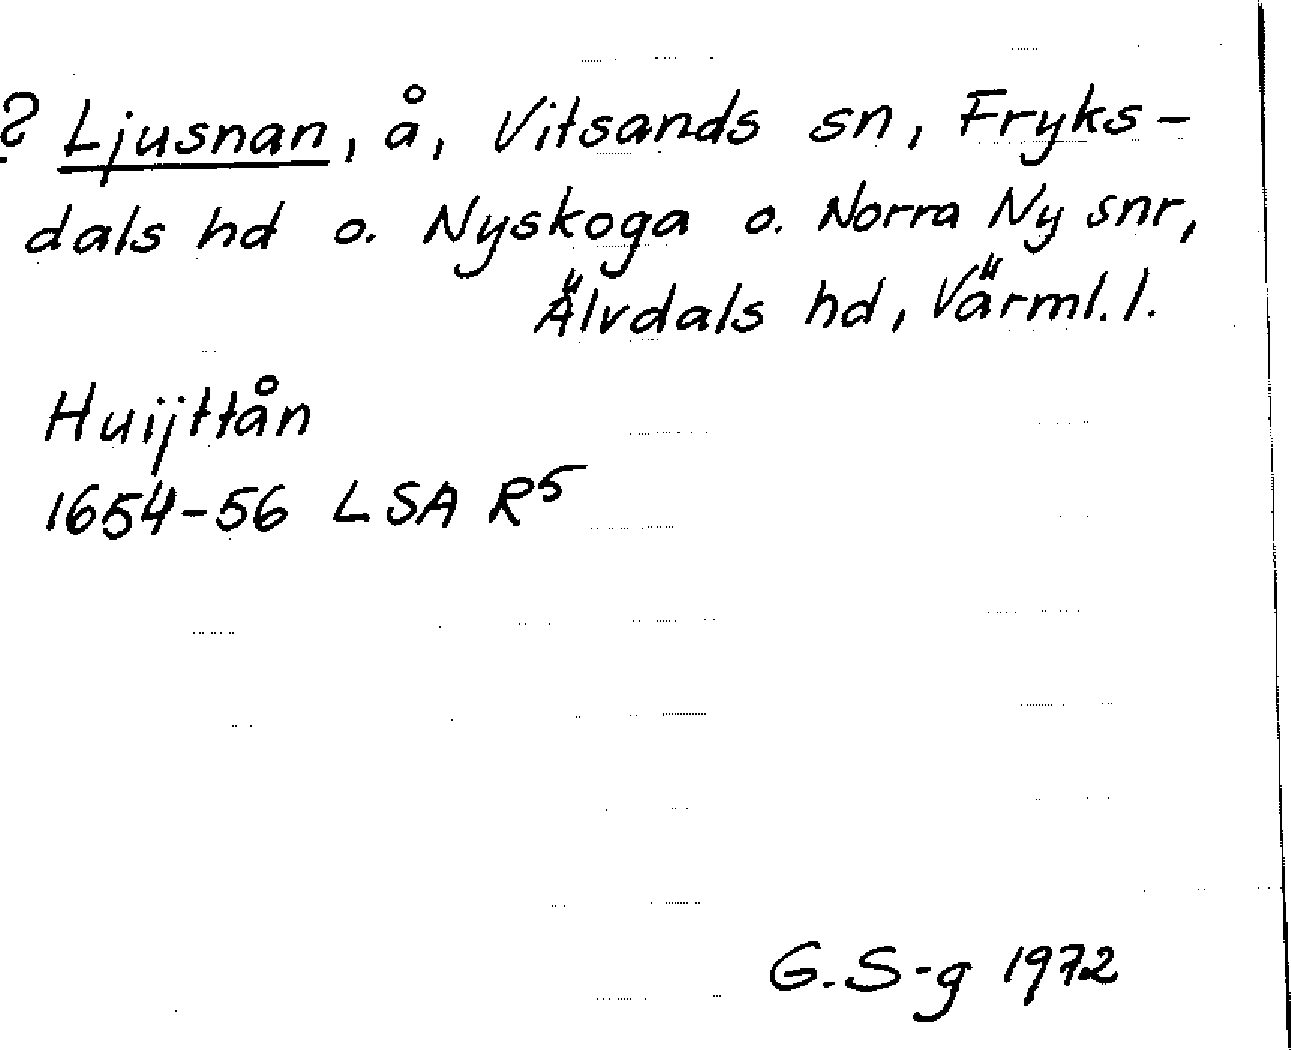 ? Ljusnan, å, Vitsands sn, Fryks-
dals hd o. Nyskoga o. Norra Ny snr,
Älvdals hd, Värml. l.
Huijttån
1654-56 LSA R5
G. S-g 1972